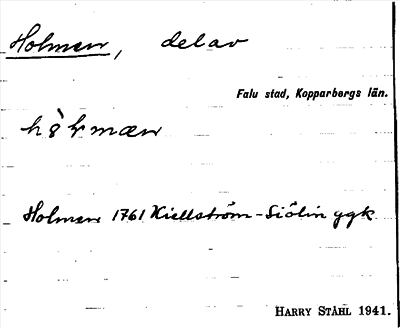 Holmen, del av
Falu stad, Kopparbergs län.
Holmen 1761 Kiellström-Siölin ygk
HARRY STÅHL 1941.